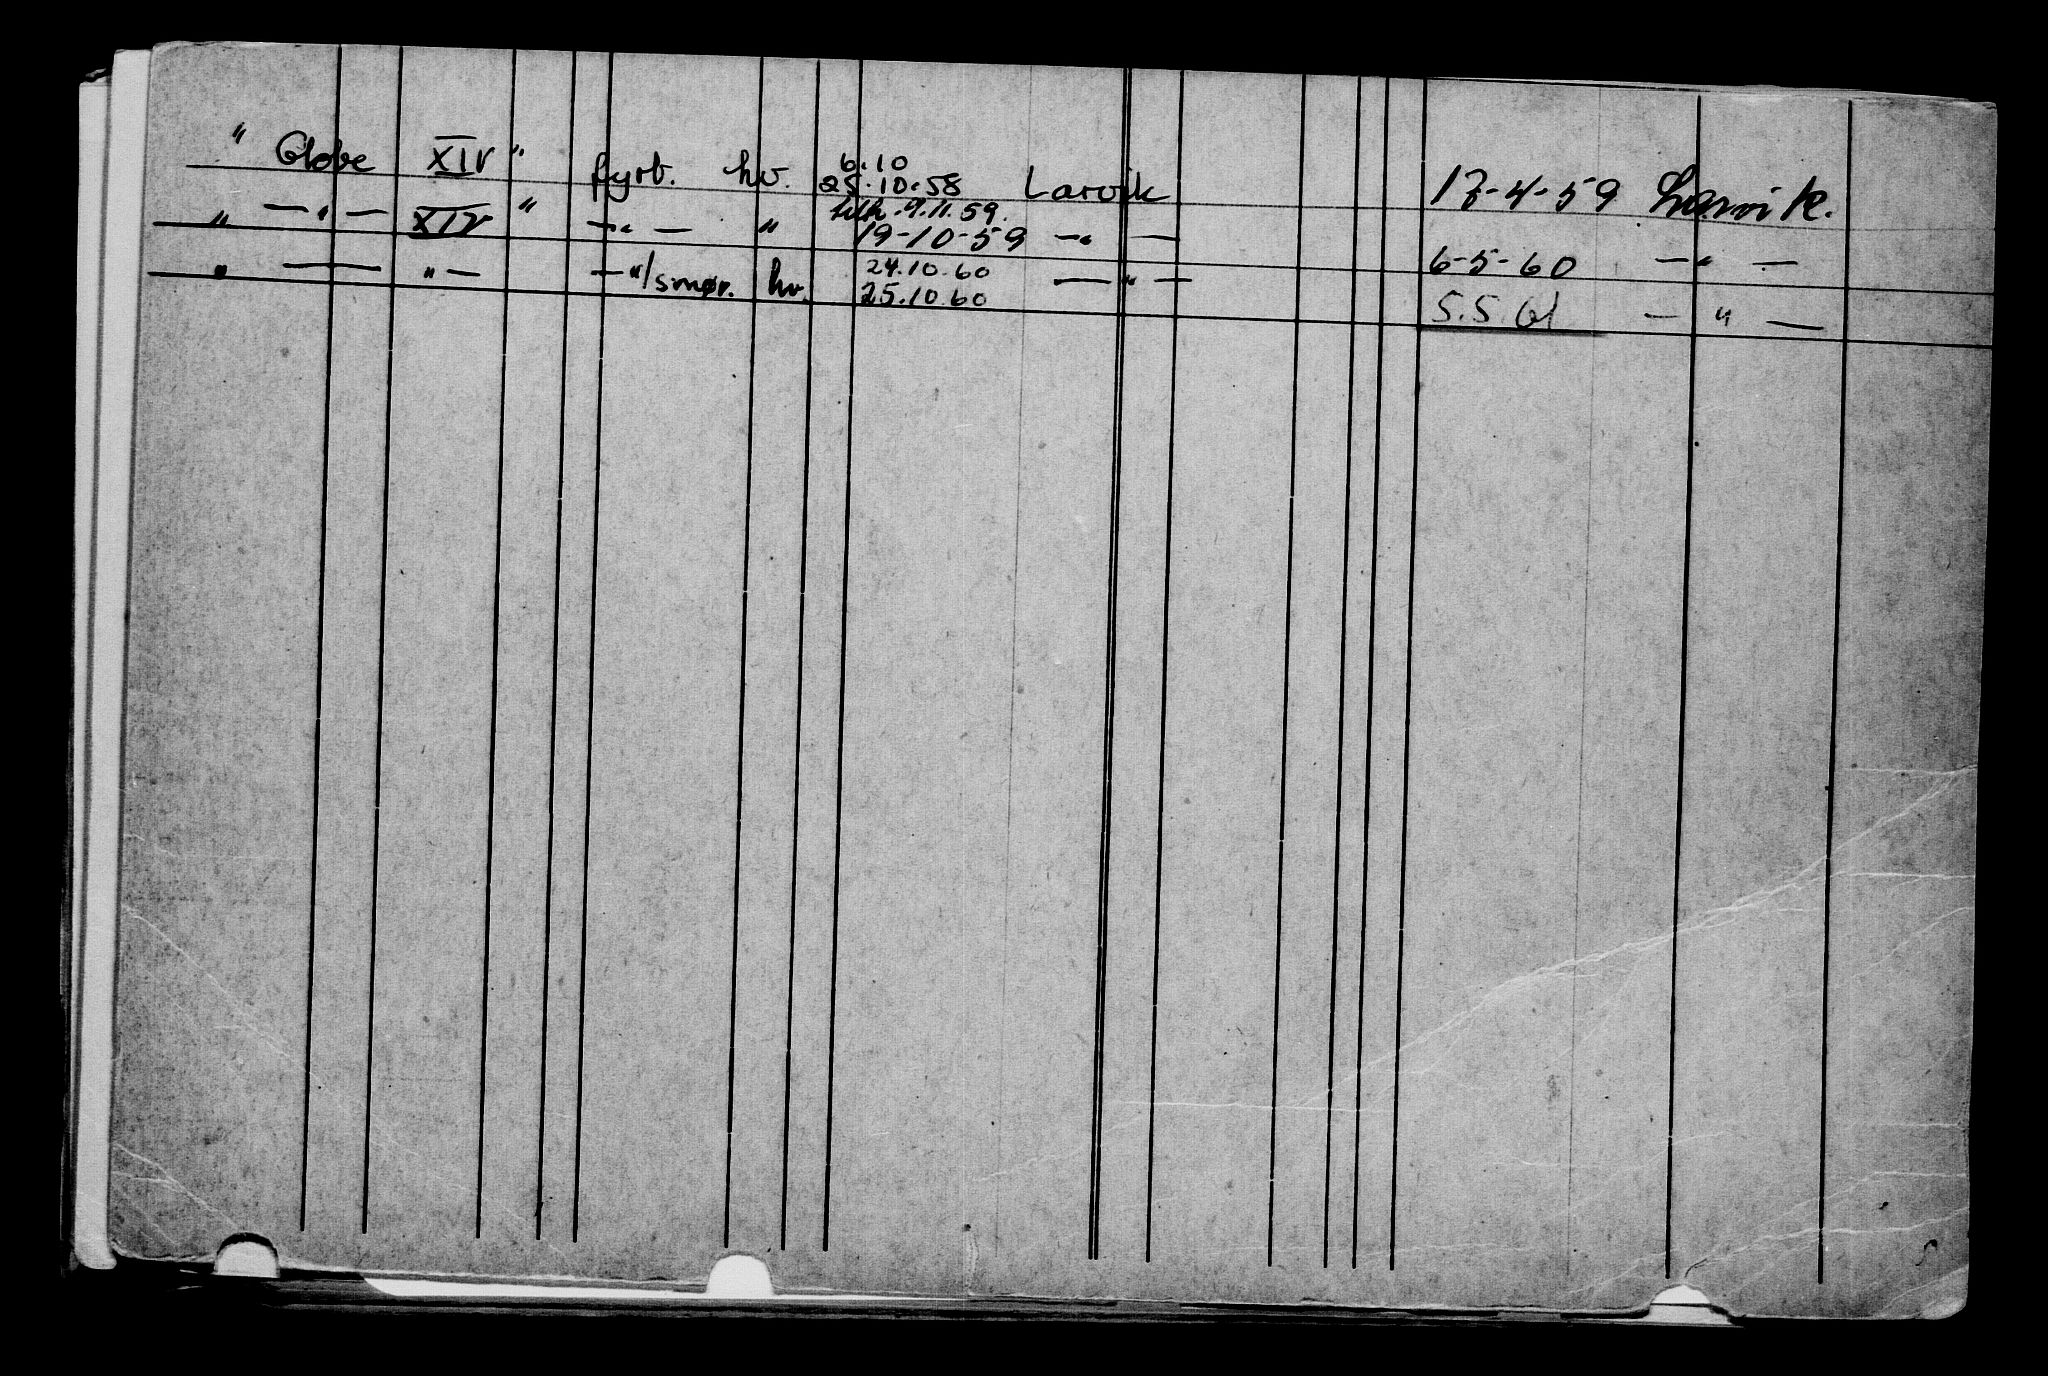 " Globe XIV " fyrb. hv. 6.10
25.10.58 Larvik 17-4-59 Larvik.
" — " — XIV " — " — " 9.11.59.
19-10-59 — " — 6-5-60 — " —
" — — " — — " / smør. hv. 24.10.60
25.10.60 — " — 5.5.61 — " —